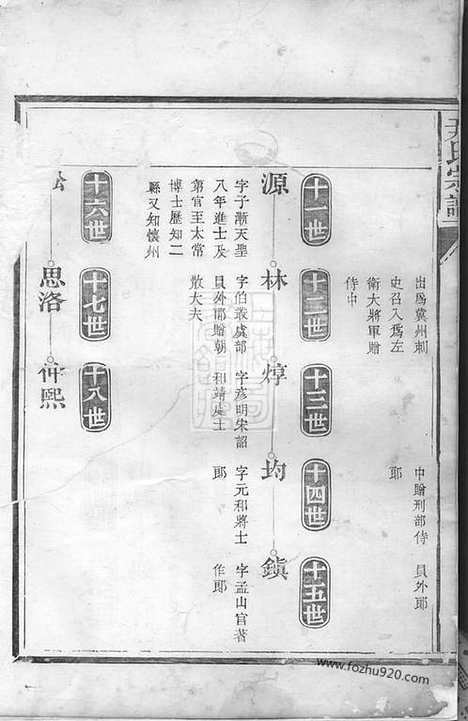 尹氏宗譜
出爲冀州刺
史召入爲左
衛大將軍贈
侍中
中贈刑部侍
郎
員外郎
十一世
十二世
十三世
十四世
十五世
源
林
焞
均
鎮
字子漸天聖
八年進士及
第官至太常
博士歷知二
縣又知懷州
字伯叢虞部
員外郎贈朝
散大夫
字彦明宋詔
和靖處士
字元和將士
郎
字孟山官著
作郎
十六世
十七世
十八世
思洛
仲熙
www.fozhu920.com